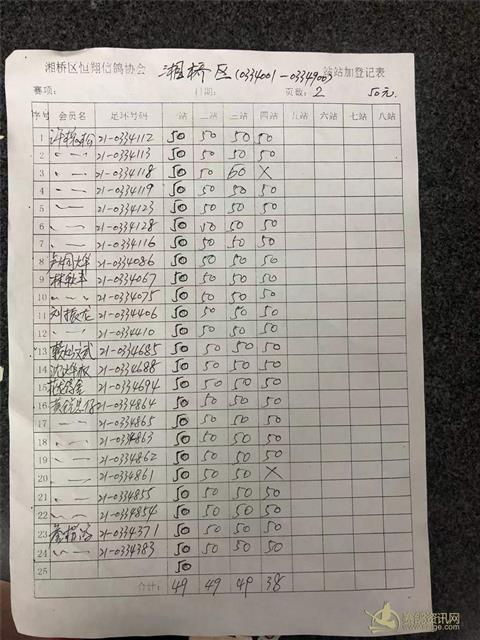 湘桥区恒翔信鸽协会 湘桥区(0334001-0334900) 站站加登记表
赛项: 日期: 页数: 2 50元
序号 会员名 足环号码 一站 二站 三站 四站 五站 六站 七站 八站
1 21-0334112 50 50 50 50
2 〃 21-0334113 50 50 50 50
3 〃 21-0334118 50 50 50 X
4 〃 21-0334119 50 50 50 50
5 〃 21-0334123 50 50 50 50
6 〃 21-0334128 50 50 50 50
7 〃 21-0334116 50 50 50 50
8 21-0334086 50 50 50 50
9 21-0334067 50 50 50 50
10 〃 21-0334075 50 50 50 50
11 刘振龙 21-0334406 50 50 50 50
12 〃 21-0334410 50 50 50 50
13 21-0334685 50 50 50 50
14 21-0334688 50 50 50 50
15 21-0334694 50 50 50 50
16 21-0334864 50 50 50 50
17 〃 21-0334865 50 50 50 50
18 〃 21-0334863 50 50 50 50
19 〃 21-0334862 50 50 50 50
20 〃 21-0334861 50 50 50 X
21 〃 21-0334855 50 50 50 50
22 〃 21-0334854 50 50 50 50
23 21-0334371 50 50 50 50
24 〃 21-0334383 50 50 50 50
25 50
合计: 49 49 49 38